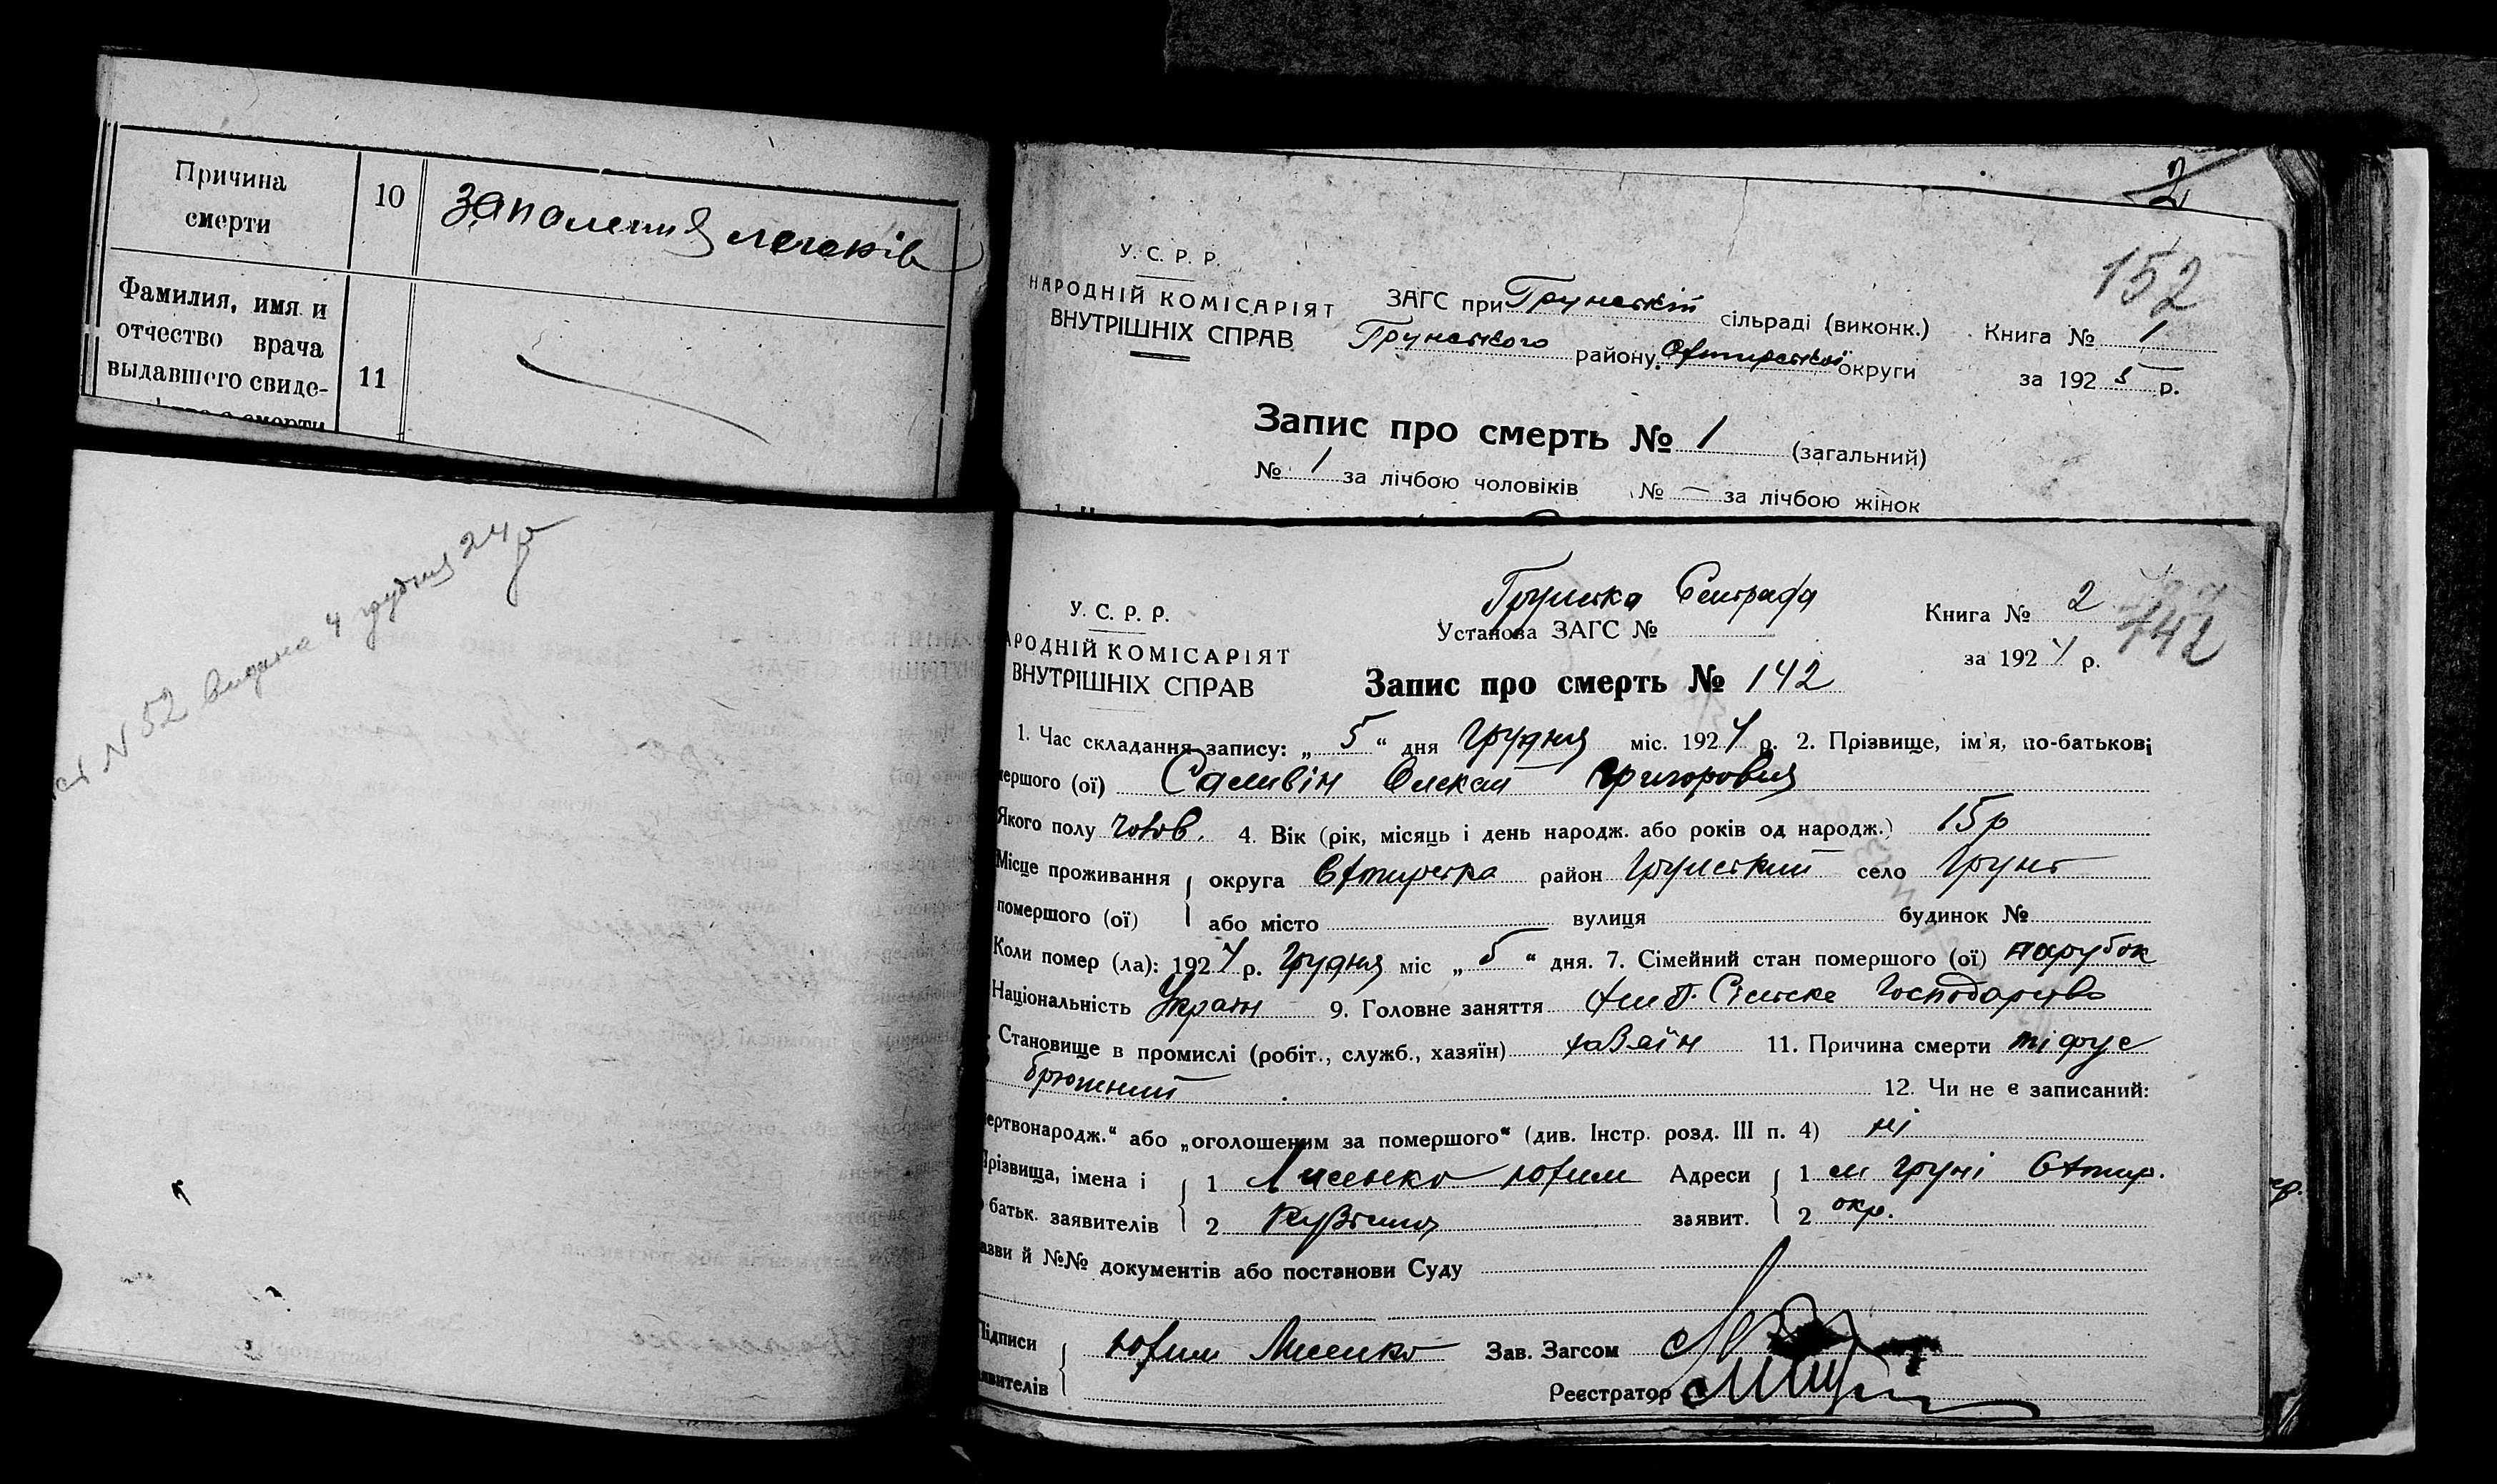 Причина смерти 10 запалення легенів
Фамилия, имя и отчество врача выдавшего свиде- 11
смерти
№ 52 видана 4 грудня 24 р
2
152
У. С. Р. Р.
НАРОДНІЙ КОМІСАРІЯТ
ВНУТРІШНІХ СПРАВ
ЗАГС при Грунській сільраді (виконк.) Книга № 1
Грунського району Охтирської округи за 1925 р.
Запис про смерть № 1 (загальний)
№ 1 за лічбою чоловіків № — за лічбою жінок
Грунська
У. С. Р. Р.
Установа ЗАГС № Книга № 2
142
АРОДНІЙ КОМІСАРІЯТ
ВНУТРІШНІХ СПРАВ
за 1924 р.
Запис про смерть № 142
1. Час складання запису: „ 5 “ дня Грудня міс. 1924 р. 2. Прізвище, ім'я, по-батькові
мершого (ої) Григоровия
Якого полу чолов. 4. Вік (рік, місяць і день народж. або років од народж.) 15 р
Місце проживання округа Охтирська район Грунський село Грунь
помершого (ої) або місто вулиця будинок №
Коли помер (ла): 1924 р. Грудня міс „ 5 “ дня. 7. Сімейний стан помершого (ої) парубок
Національність Україн 9. Головне заняття Сільске Господарство
Становище в промислі (робіт., служб., хазяїн) хазяїн 11. Причина смерти тіфус
брюшний 12. Чи не є записаний:
мертвонародж.“ або „оголошеним за помершого“ (див. Інстр. розд. III п. 4) ні
Прізвища, імена і 1 Лисенко Юхим Адреси 1 м Груні Охтир.
батьк. заявителів 2 заявит. 2 окр.
азви й №№ документів або постанови Суду
Підписи Юхим Лисенко Зав. Загсом
явителів Реєстратор